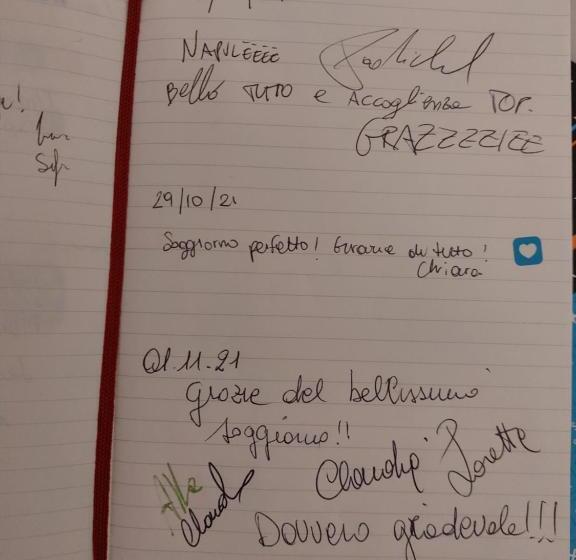 NAPULÈÈÈÈ
BELLO TUTTO e Accoglienza TOP.
GRAZZZZIEE
29/10/21
Soggiorno perfetto! Grazie di tutto!
Chiara
01.11.21
grazie del bellissimo
soggiorno!!
Claudia Lorette
Claud
Davvero gradevole!!!